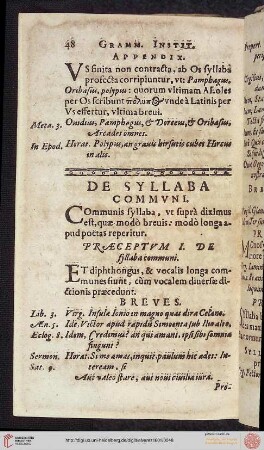 48 GRAMM. INSTIT.
APPENDIX.
VS finita non contracta, ab Os syllaba
profecta corripiuntur, vt: Pamphagus,
Oribasus, polypus: quorum vltimam AEoles
per Os scribunt vndè à Latinis per
Vs effertur, vltima breui.
Meta. 3. Ouidius, Pamphagus, & Dorceus, & Oribasus,
Arcades omnes.
In Epod. Horat. Polypus, an grauis hirsutis cubet Hircus
in alis.
DE SYLLABA
COMMVNI.
COmmunis syllaba, vt suprà diximus
est, quæ modò breuis: modò longa a-
pud poëtas reperitur.
PRÆCEPTVM I. DE
syllaba communi.
ET diphthongus, & vocalis longa com-
munes fiunt, cùm vocalem diuersæ di-
ctionis præcedunt.
BREVES.
Lib. 3. Virg. Insulæ Ionio in magno quas dira Celæno.
Æn. 5. Id. Victor apud rapidū Simoenta sub Ilio alto.
Eclog. 8. Idem, Credimus? an qui amant, ipsi sibi somnia
fingunt?
Sermon. Horat. Si me amas, inquit, paulùm hîc ades: In-
Sat. 9. teream, si
Aut valeo stare, aut noui ciuilia iura.
Pro-